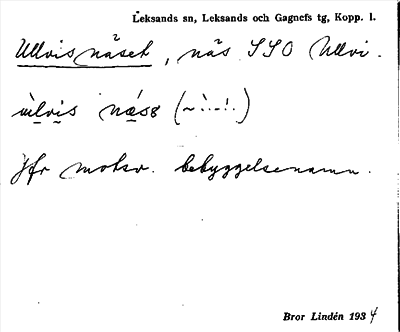 Leksands sn, Leksands och Gagnefs tg, Kopp. l.
Ullvisnäset, näs SSO Ullvi.
ùlvis
Jfr motsv. bebyggelsenamn.
Bror Lindén 1934